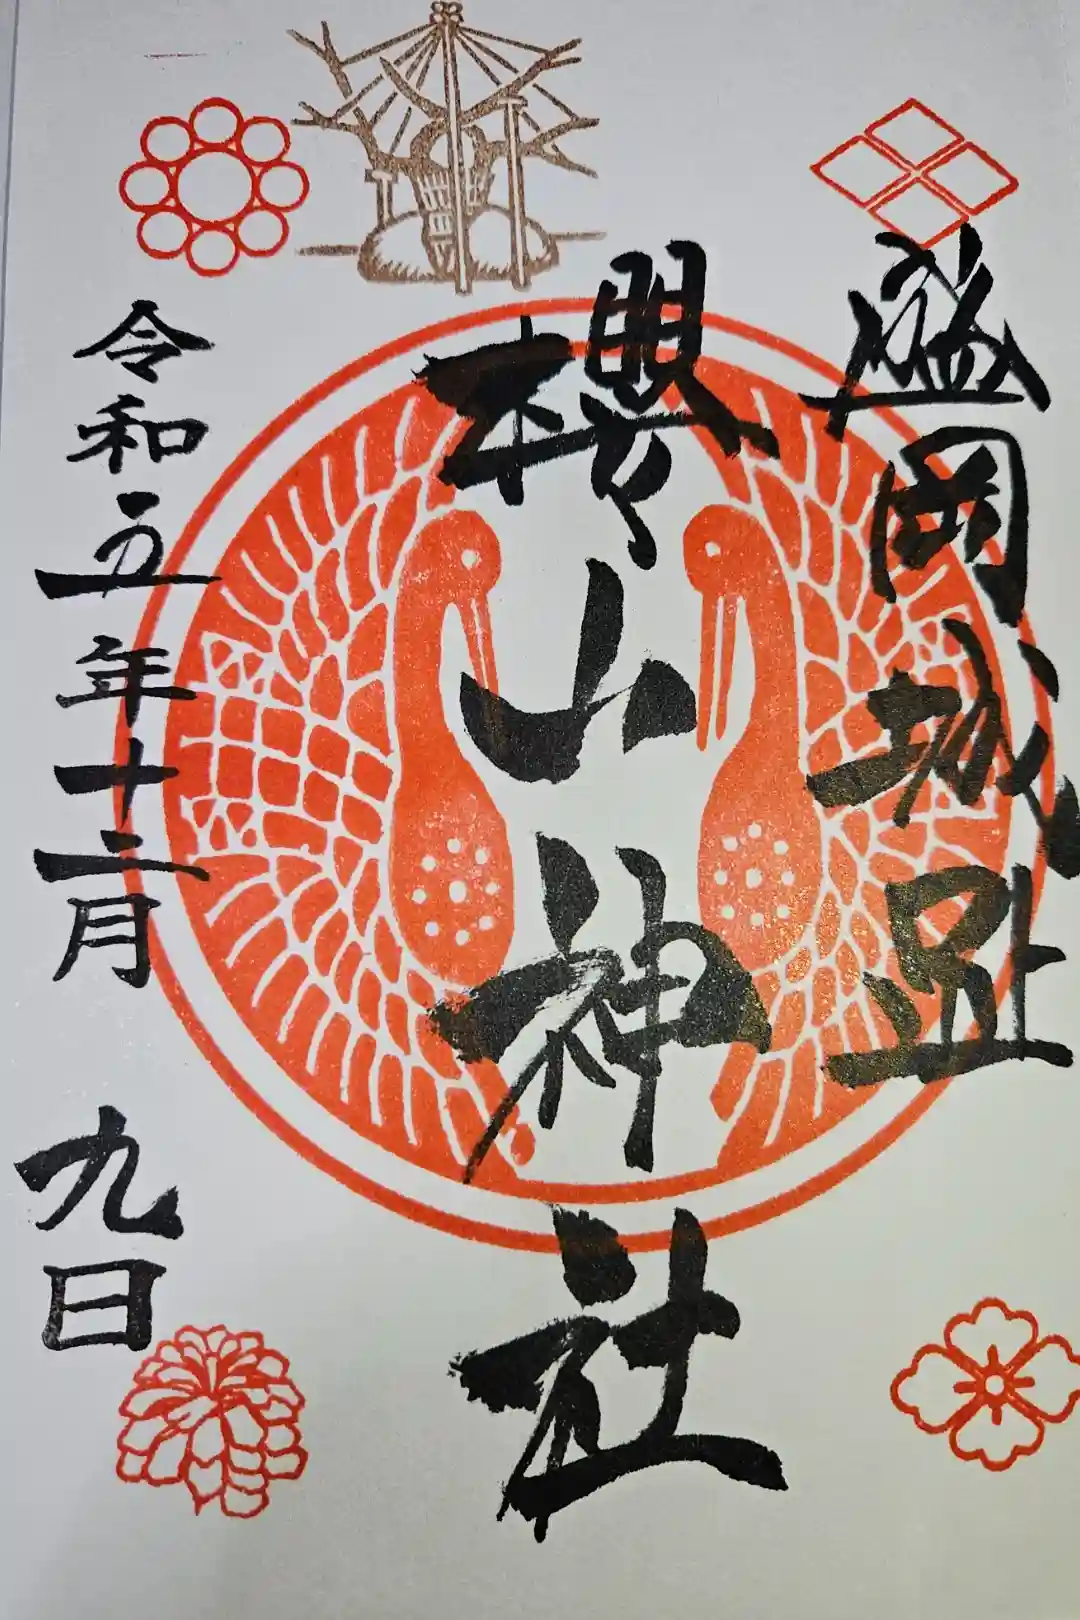 盛岡城跡
櫻山神社
令和五年十二月 九日